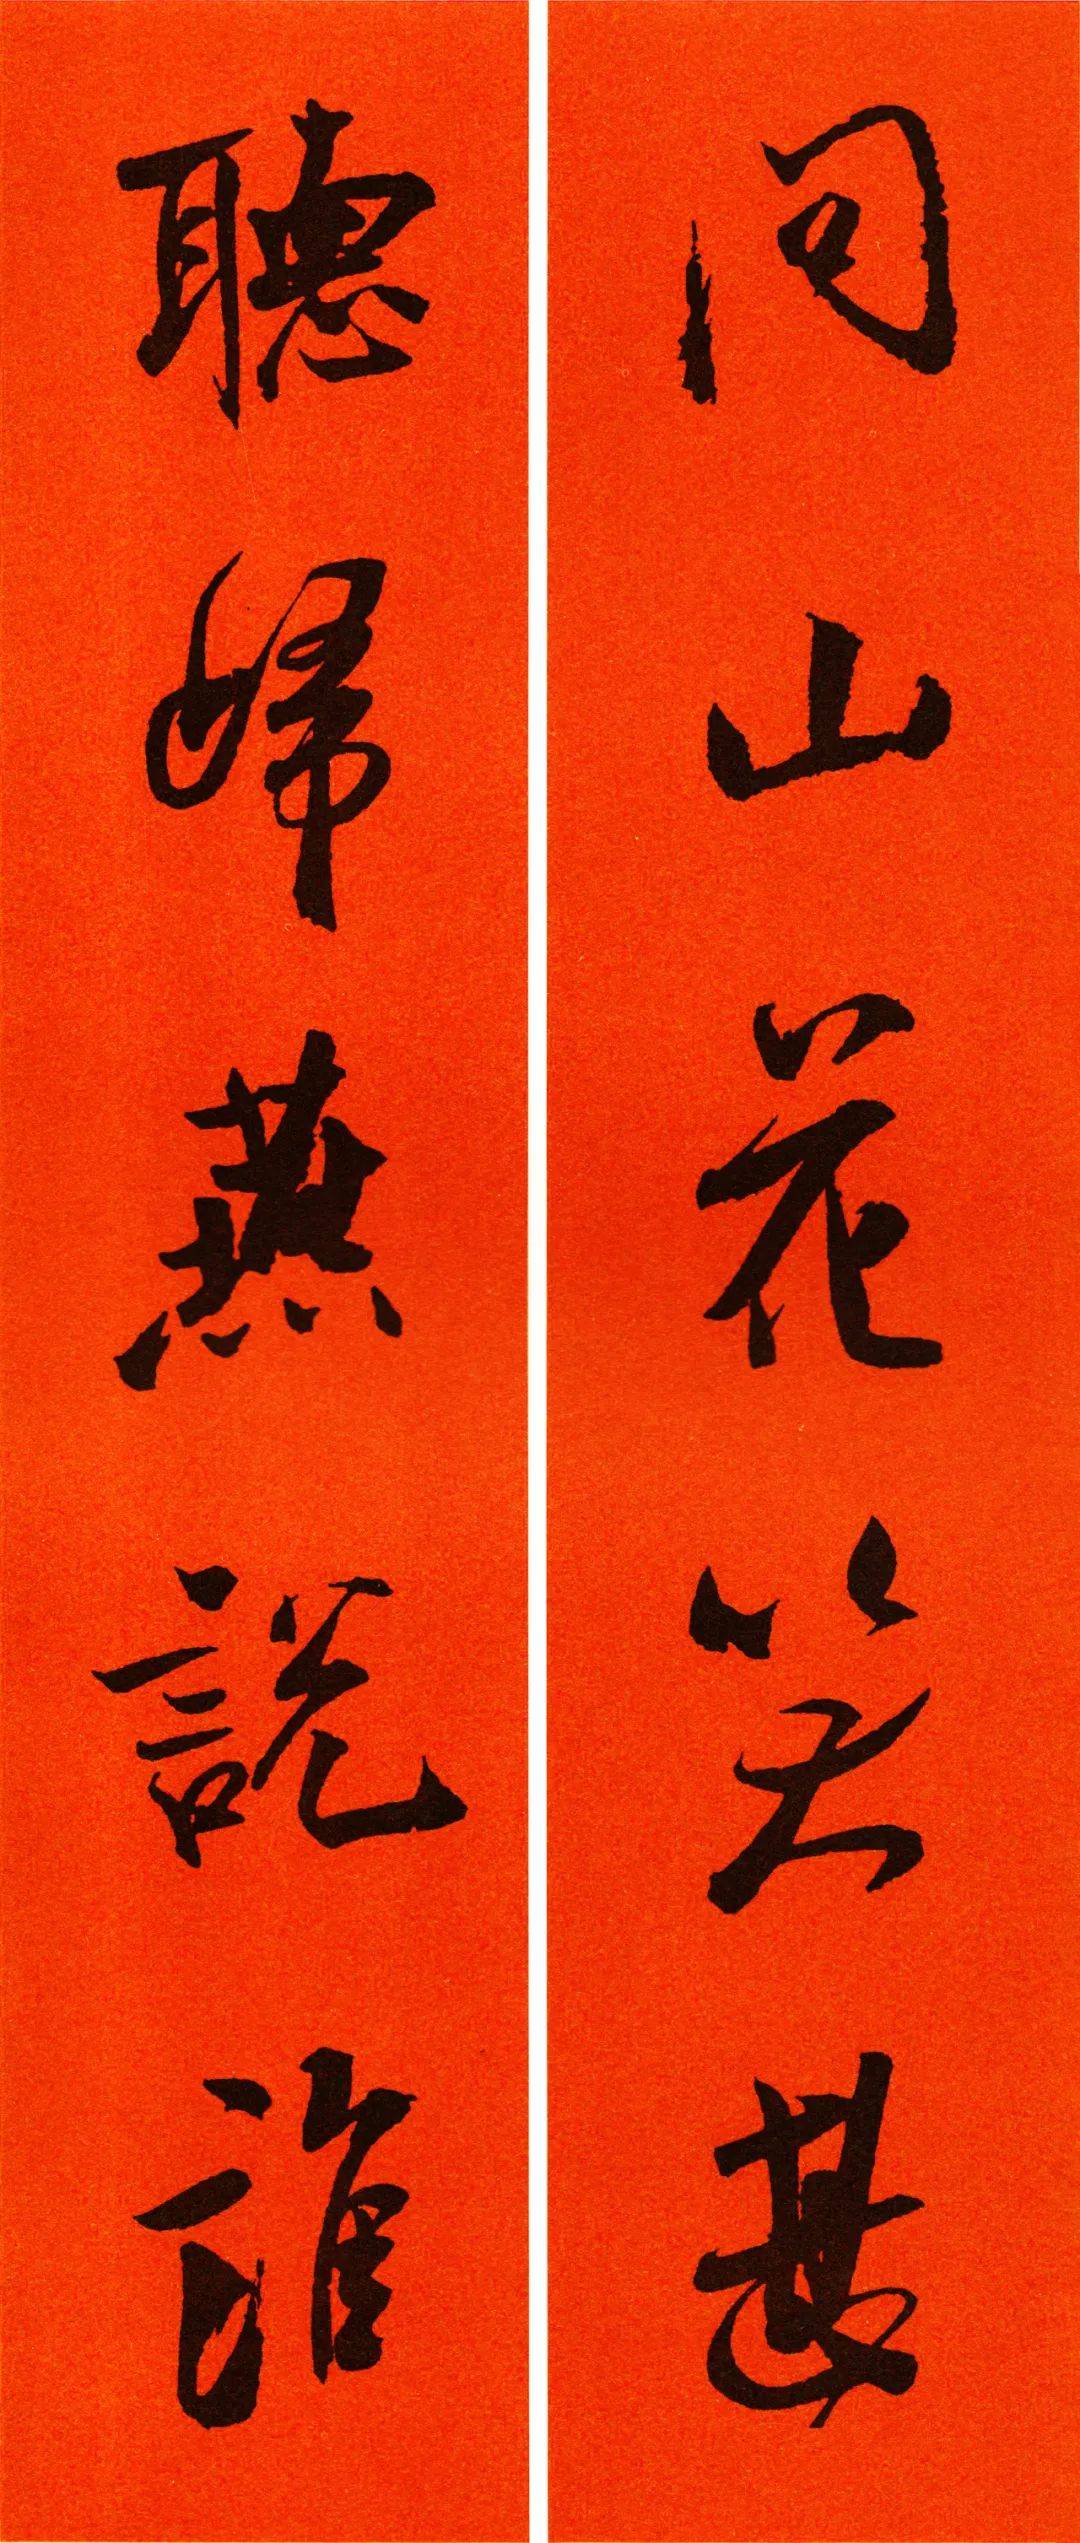 問山花笑甚
聽歸燕説誰